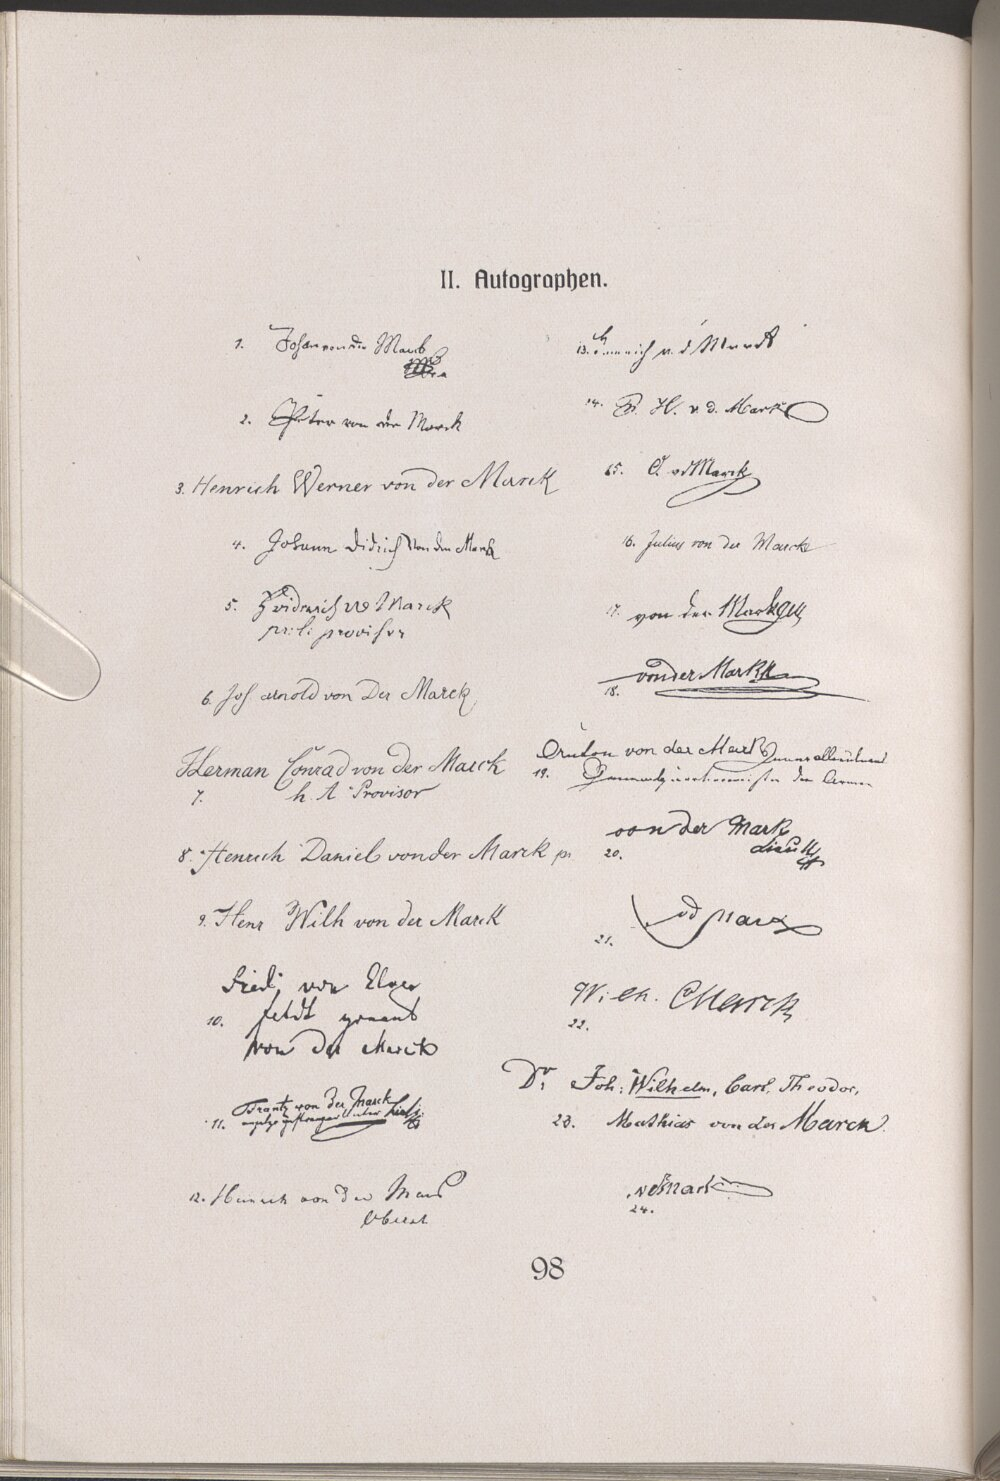 II. Autographen.
1. Johan von der Marck
2. Peter von der Marck
3. Henrich Werner von der Marck
4. Johann Didrich von der Marck
5. Fridrich vd Marck
provisor
6. Joh arnold von Der Marck
Herman Conrad von der Marck
7. h. A Provisor
8. Henrich Daniel von der Marck
9. Henr Wilh von der Marck
Fried: von
10. Jetzt genant
von der Marck
Frantz von der Marck
11.
12. Henrich von der Marck
Oberst
13. Heinrich v. d. Marck
14. H. v. d. Mark
15. C. vd Marck
16. Julius von der Marck
17. von der Mark
von der Mark
18.
Anton von der Mark
19. der Armee
von der Mark
20.
vd Marck
21.
Wilh. Marck
22.
Dr. Joh: Wilhelm, Carl, Theodor,
23. Mathias von der Marck.
vd Mark
24.
98